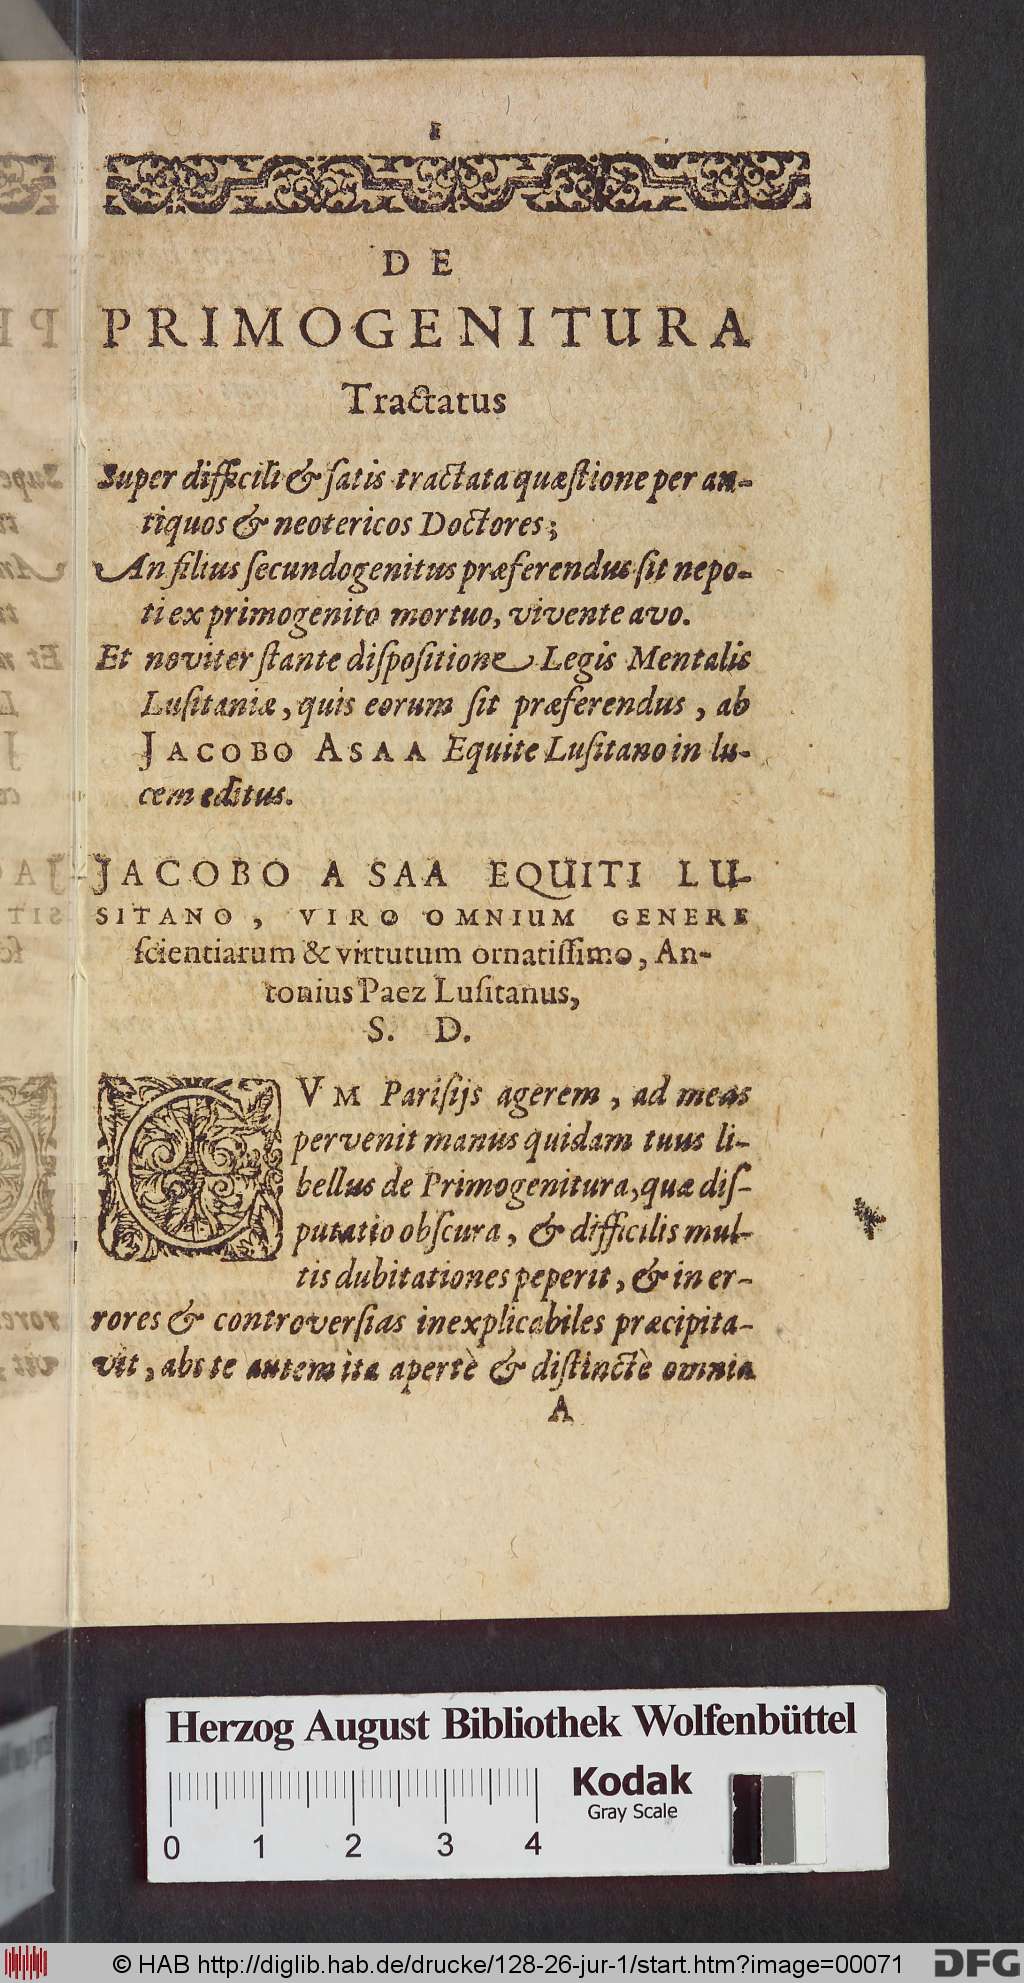 1
DE
PRIMOGENITURA
Tractatus
Super difficili & ſatis tractata quæſtione per an-
tiquos & neotericos Doctores;
An filius ſecundogenitus præferendus ſit nepo-
ti ex primogenito mortuo, vivente avo.
Et noviter ſtante diſpoſitione Legis Mentalis
Luſitaniæ, quis eorum ſit præferendus, ab
JACOBO ASAA Equite Luſitano in lu-
cem editus.
JACOBO A SAA EQUITI LU-
SITANO, VIRO OMNIUM GENERE
ſcientiarum & virtutum ornatiſſimo, An-
tonius Paez Luſitanus,
S. D.
CVM Pariſijs agerem, ad meas
pervenit manus quidam tuus li-
bellus de Primogenitura, quæ diſ-
putatio obſcura, & difficilis mul-
tis dubitationes peperit, & in er-
rores & controverſias inexplicabiles præcipita-
vit, abs te autem ita apertè & diſtinctè omnia
A
Herzog August Bibliothek Wolfenbüttel
Kodak
Gray Scale
0 1 2 3 4
© HAB http://diglib.hab.de/drucke/128-26-jur-1/start.htm?image=00071
DFG